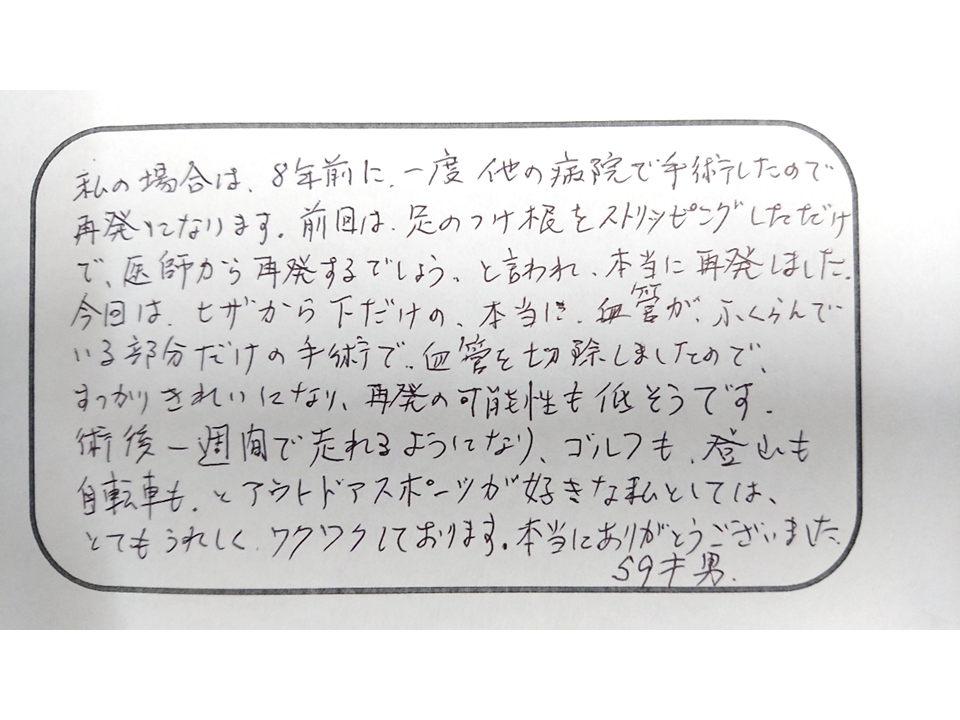 私の場合は、8年前に、一度他の病院で手術したので
再発になります。前回は、足のつけ根をストリッピングしただけ
で、医師から再発するでしょう、と言われ、本当に再発しました。
今回は、ヒザから下だけの、本当に、血管が、ふくらんで
いる部分だけの手術で、血管を切除しましたので、
すっかりきれいになり、再発の可能性も低そうです。
術後一週間で走れるようになり、ゴルフも、登山も
自転車も、とアウトドアスポーツが好きな私としては、
とてもうれしく、ワクワクしております。本当にありがとうございました。
59才男.